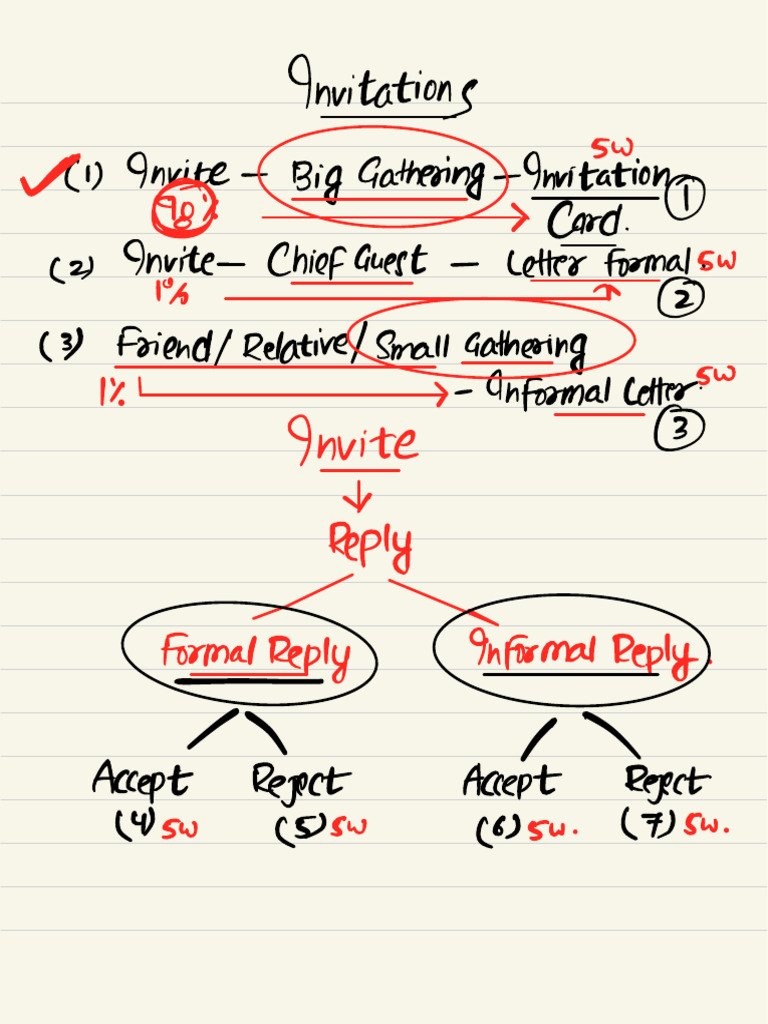 Invitations
5W
(1) Invite – Big Gathering – Invitation Card. 1
98%
(2) Invite – Chief Guest – Letter Formal. 5W
1% 2
(3) Friend/Relative/Small Gathering
1% – Informal Letter. 5W
3
Invite
Reply
Formal Reply Informal Reply.
Accept Reject Accept Reject
(4) 5W (5) 5W (6) 5W. (7) 5W.